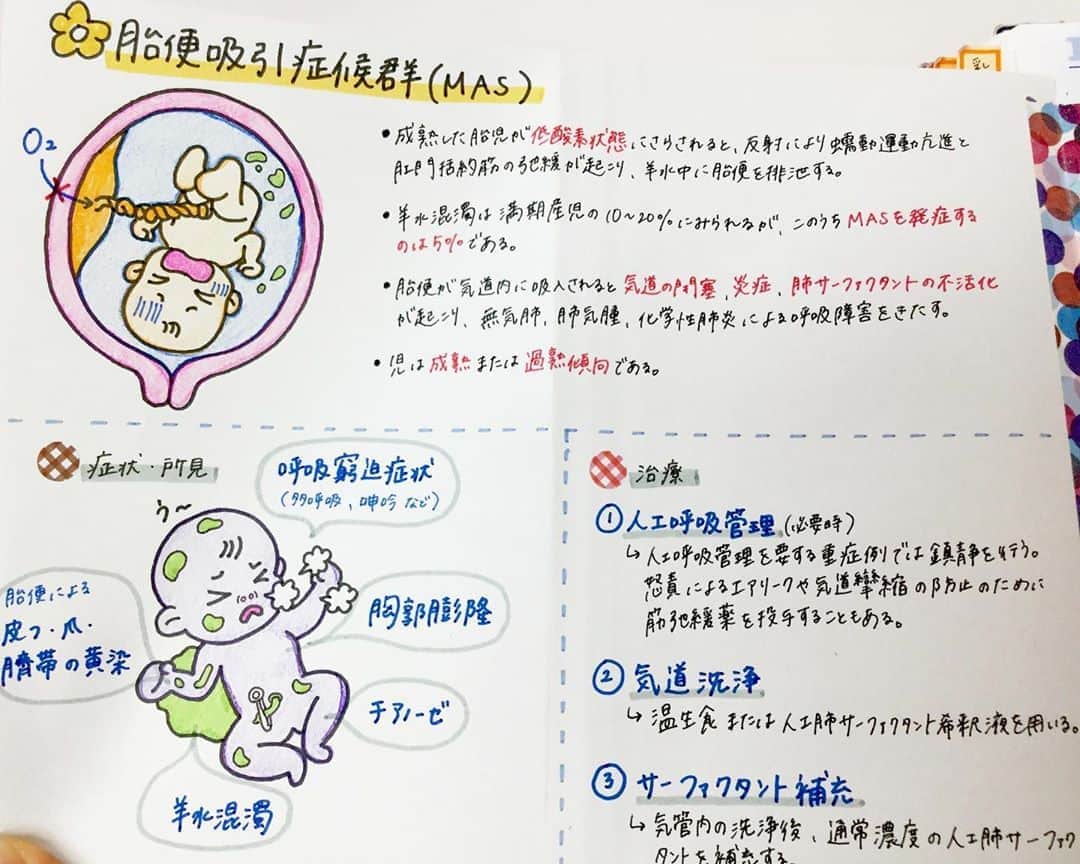 胎便吸引症候群(MAS)
乳
O₂
• 成熟した胎児が低酸素状態にさらされると、反射により蠕動運動亢進と
肛門括約筋の弛緩が起こり、羊水中に胎便を排泄する。
• 羊水混濁は満期産児の10～20%にみられるが、このうちMASを発症する
のは5%である。
• 胎便が気道内に吸入されると気道の閉塞、炎症、肺サーファクタントの不活化
が起こり、無気肺、肺気腫、化学性肺炎による呼吸障害をきたす。
• 児は成熟または過熟傾向である。
症状・所見
う〜
呼吸窮迫症状
(多呼吸、呻吟など)
胎便による
皮フ・爪・
臍帯の黄染
胸郭膨隆
チアノーゼ
羊水混濁
治療
① 人工呼吸管理(必要時)
↳ 人工呼吸管理を要する重症例では鎮静を行う。
怒責によるエアリークや気道攣縮の防止のために
筋弛緩薬を投与することもある。
② 気道洗浄
↳ 温生食または人工肺サーファクタント希釈液を用いる。
③ サーファクタント補充
↳ 気管内の洗浄後、通常濃度の人工肺サーファク
タントを補充する。